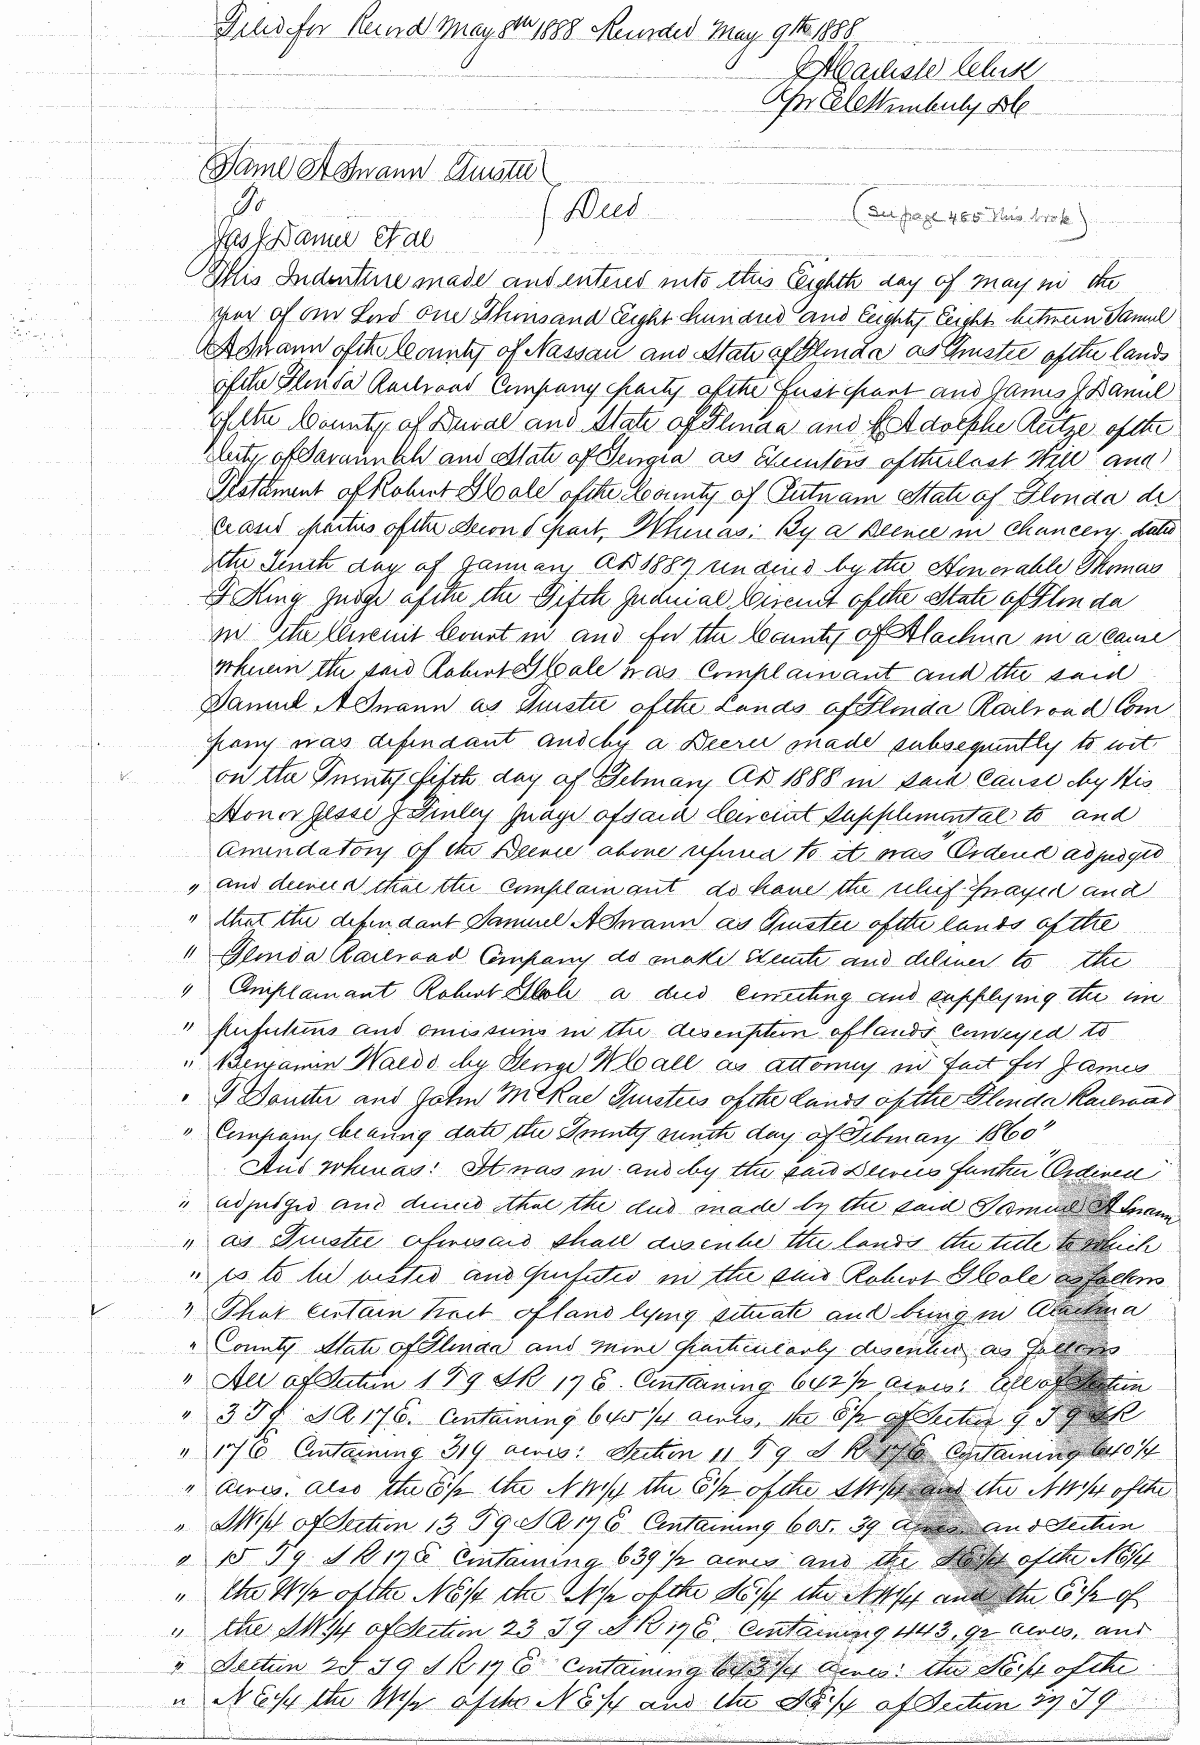 Filed for Record May 8th 1888 Recorded May 9th 1888
J A Carlisle Clerk
Pr C C Wimberly DC
Saml A Swann Trustee
To
Deed
(See page 455 this book)
Jas J Daniel et al
This Indenture made and entered into this Eighth day of May in the
year of our Lord one Thousand Eight hundred and Eighty Eight between Samuel
A Swann of the County of Nassau and State of Florida as Trustee of the lands
of the Florida Railroad Company party of the first part and James J Daniel
of the County of Duval and State of Florida and Adolphe Reitze of the
City of Savannah and State of Georgia as Executors of the last Will and
Testament of Robert G Cole of the County of Putnam State of Florida de
ceased parties of the Second part, Whereas: By a Decree in Chancery dated
the Tenth day of January AD 1887 rendered by the Honorable Thomas
F King Judge of the the Fifth Judicial Circuit of the State of Florida
in the Circuit Court in and for the County of Alachua in a cause
wherein the said Robert G Cole was Complainant and the said
Samuel A Swann as Trustee of the Lands of Florida Railroad Com
pany was defendant and by a Decree made subsequently to wit
on the Twenty fifth day of February AD 1888 in said Cause by His
Honor Jesse J Finley Judge of said Circuit Supplemental to and
amendatory of the Decree above refered to it was "Ordered adjudged
" and decreed that the Complainant do have the relief prayed and
" that the defendant Samuel A Swann as Trustee of the lands of the
" Florida Railroad Company do make Execute and deliver to the
" Complainant Robert G Cole a deed correcting and supplying the im
" perfections and omissions in the description of lands conveyed to
" Benjamin Waldo by George W Call as attorney in fact for James
" T Soutter and John McRae Trustees of the lands of the Florida Railroad
" Company bearing date the Twenty ninth day of February 1860"
And whereas: It was in and by the said Decrees further "Ordered
" adjudged and decreed that the deed made by the said Samuel A Swann
" as Trustee aforesaid shall describe the lands the title to which
" is to be vested and perfected in the said Robert G Cole as follows
" That certain tract of land lying situate and being in Alachua
" County State of Florida and more particularly described as follows
" All of Section 1 T 9 S R 17 E. Containing 642 1/2 acres: All of Section
" 3 T 9 S R 17 E. Containing 645 1/4 acres, the E 1/2 of Section 9 T 9 S R
" 17 E Containing 319 acres: Section 11 T 9 S R 17 E Containing 640 1/4
" acres, also the E 1/2 the NW 1/4 the E 1/2 of the SW 1/4 and the NW 1/4 of the
" SW 1/4 of Section 13 T 9 S R 17 E Containing 605.39 acres and Section
" 15 T 9 S R 17 E Containing 639 1/2 acres and the SE 1/4 of the NE 1/4
" the W 1/2 of the NE 1/4 the N 1/2 of the SE 1/4 the NW 1/4 and the E 1/2 of
" the SW 1/4 of Section 23 T 9 S R 17 E. Containing 443.92 acres, and
" Section 25 T 9 S R 17 E Containing 643 3/4 acres: the SE 1/4 of the
" NE 1/4 the W 1/2 of the NE 1/4 and the SE 1/4 of Section 27 T 9